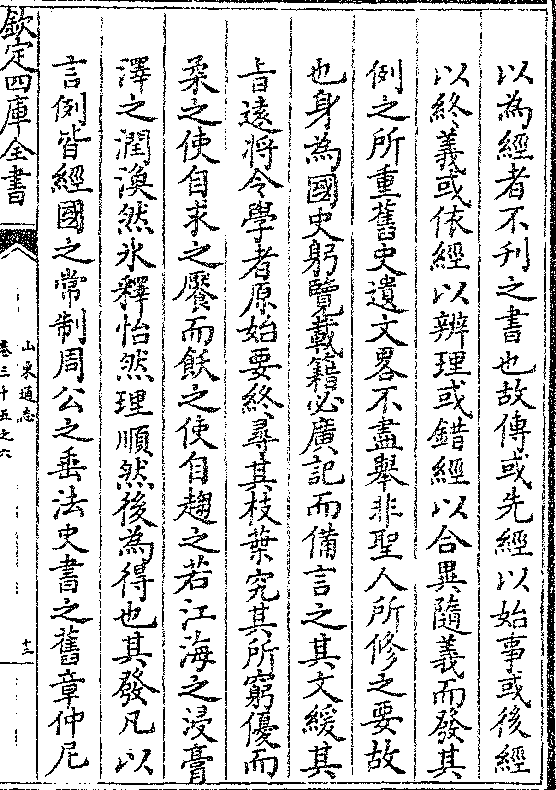 以為經者不刋之書也故傳或先經以始事或後經
以終義或依經以辨理或錯經以合異隨義而發其
例之所重舊史遺文畧不盡舉非聖人所修之要故
也身為國史躬覽載籍必廣記而備言之其文緩其
旨遠將令學者原始要終尋其枝葉究其所窮優而
柔之使自求之饜而飫之使自趨之若江海之浸膏
澤之潤渙然氷釋怡然理順然後為得也其發凡以
言例皆經國之常制周公之垂法史書之舊章仲尼
欽定四庫全書
山東通志
卷三十五之六
十三